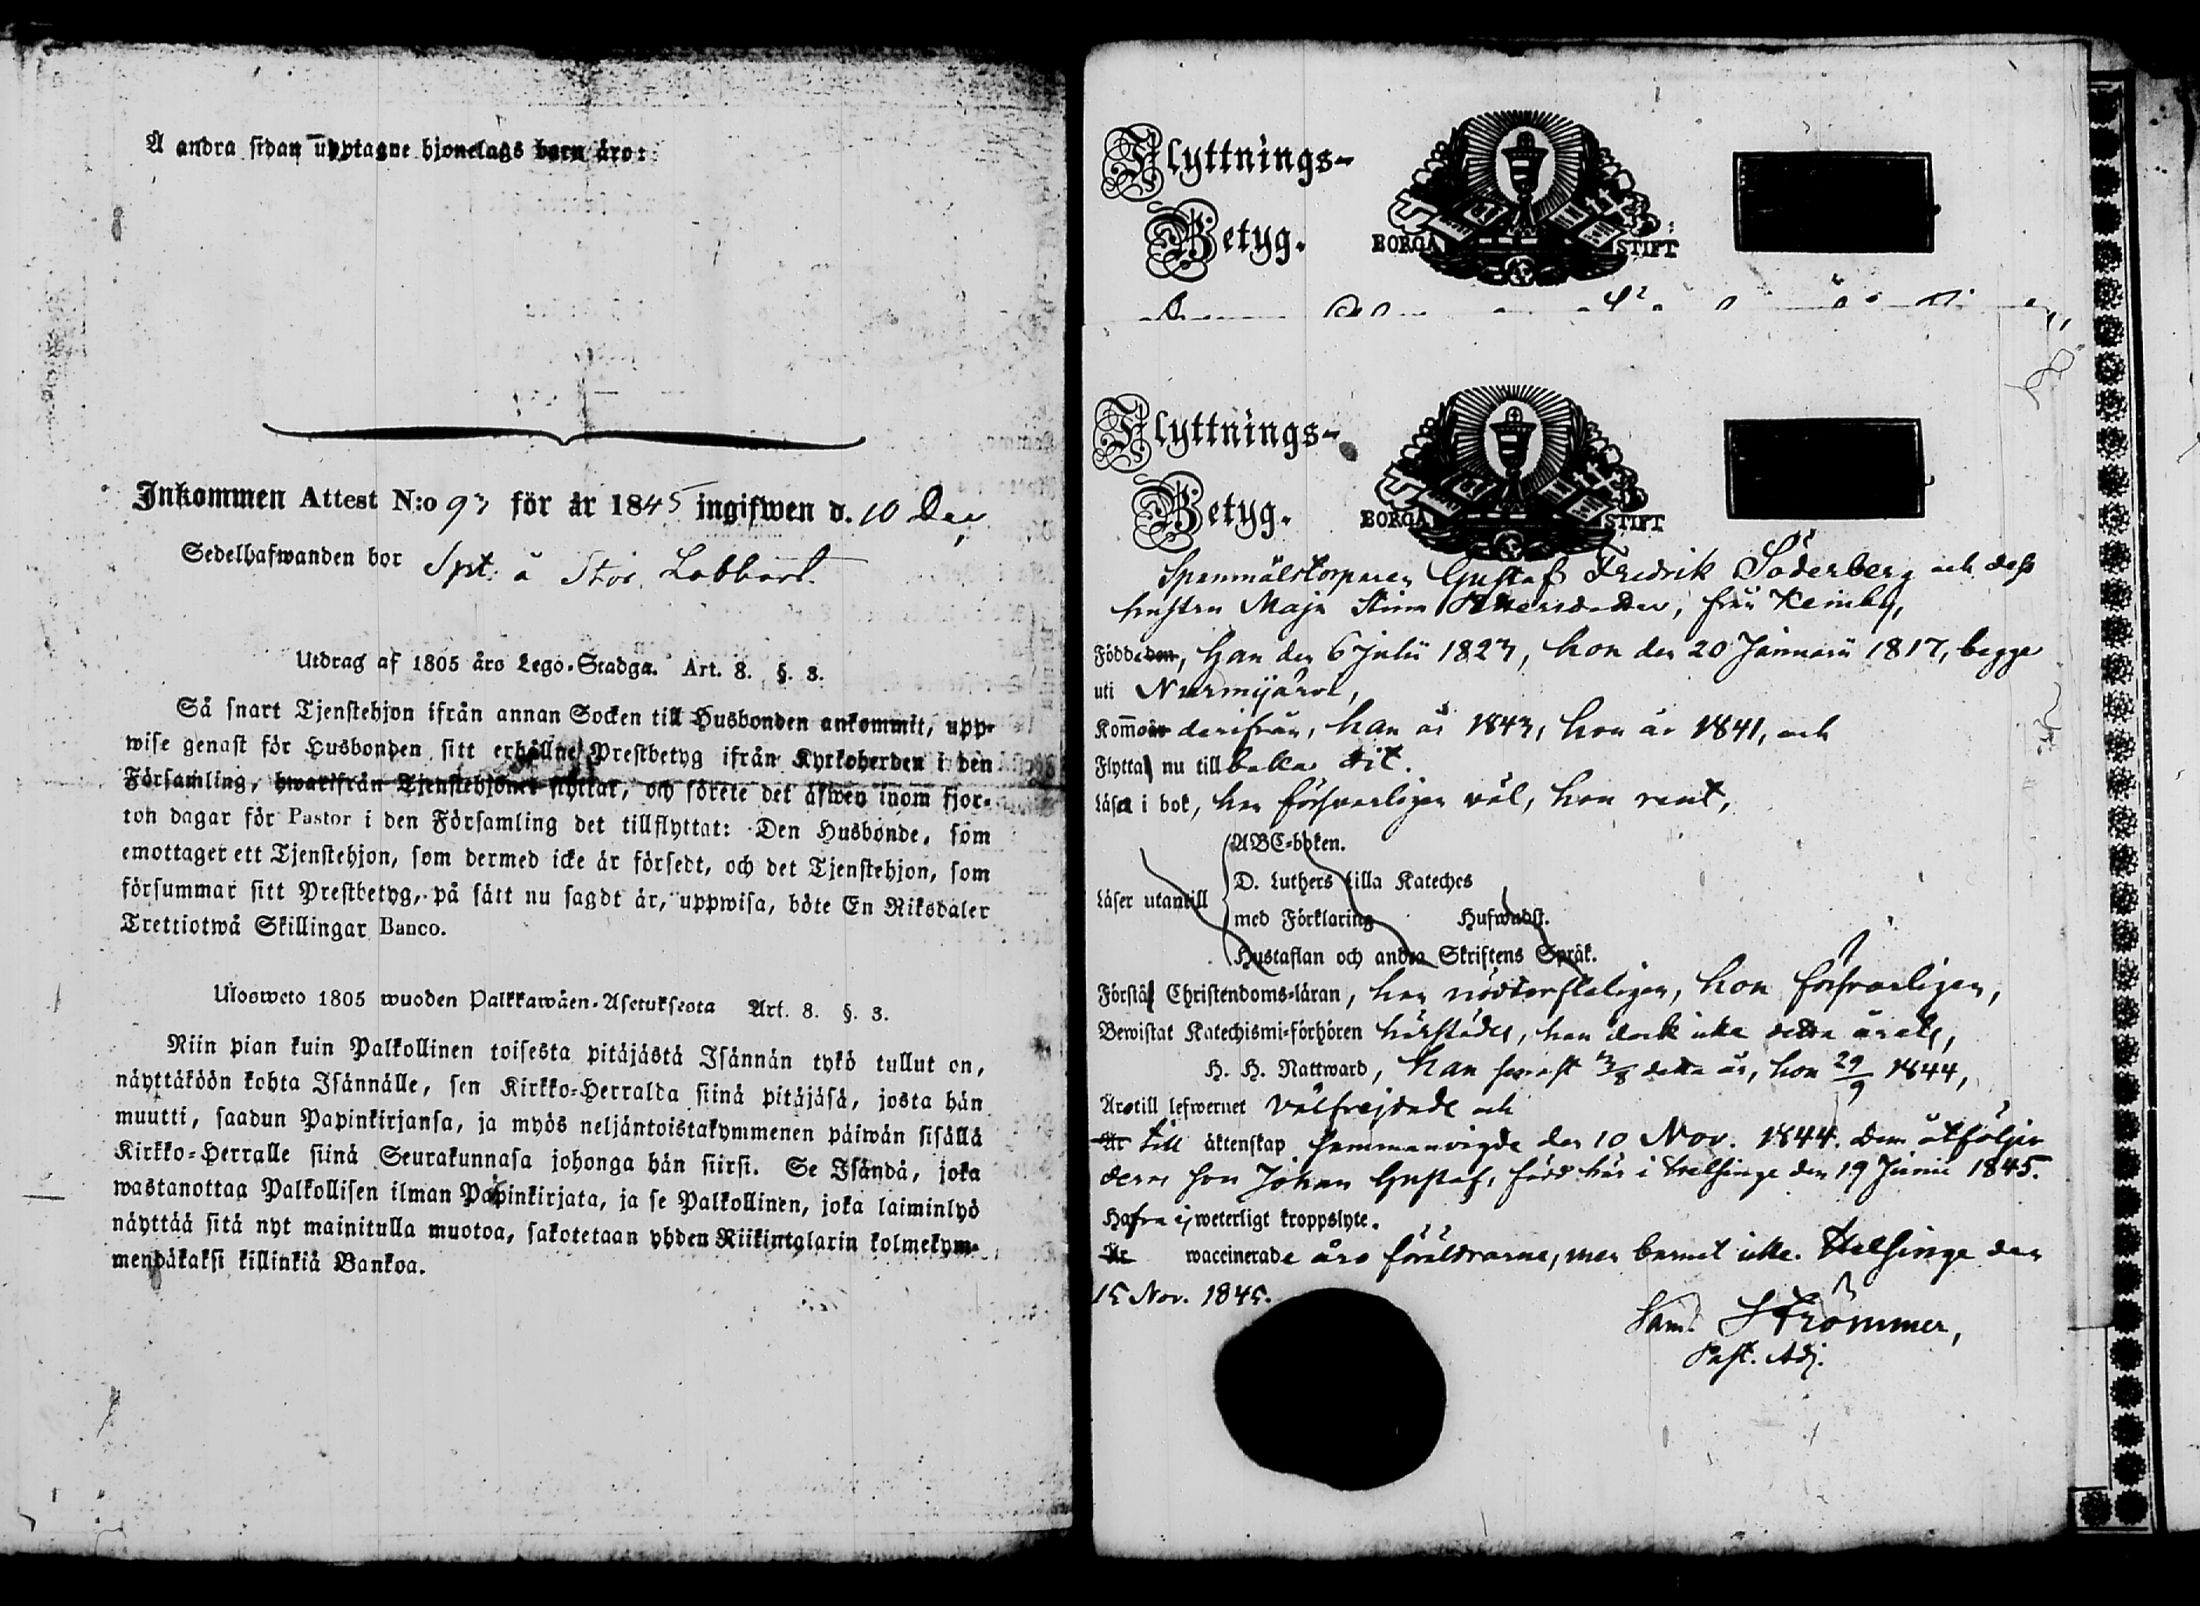 Å andra sidan upptagne hjonelags barn äro:
Inkommen Attest N:o 93 för år 1845 ingifwen d. 10 Dec.
Sedelhafwanden bor Spt. å Stor Labbart.
Utdrag af 1805 års Lego-Stadga. Art. 8. §. 3.
Så snart Tjenstehjon ifrån annan Socken till Husbonden ankommit, upp-
wise genast för Husbonden sitt erhållne Prestbetyg ifrån Kyrkoherden i den
Församling, hwarifrån Tjenstehjonet flyttat, och förete det äfwen inom fjor-
ton dagar för Pastor i den Församling det tillflyttat: Den Husbonde, som
emottager ett Tjenstehjon, som dermed icke är försedt, och det Tjenstehjon, som
försummar sitt Prestbetyg, på sätt nu sagdt är, uppwisa, böte En Riksdaler
Trettiotwå Skillingar Banco.
Ulosweto 1805 wuoden Palkkawäen-Asetuksesta Art. 8. §. 3.
Niin pian kuin Palkollinen toisesta pitäjästä Isännän tykö tullut on,
näyttäköön kohta Isännälle, sen Kirkko-Herralda siinä pitäjäsä, josta hän
muutti, saadun Papinkirjansa, ja myös neljäntoistakymmenen päiwän sisällä
Kirkko-Herralle siinä Seurakunnasa johonga hän siirsi. Se Isändä, joka
wastanottaa Palkollisen ilman Papinkirjata, ja se Palkollinen, joka laiminlyö
näyttää sitä nyt mainitulla muotoa, sakotetaan yhden Riikintalarin kolmekym-
mendäkaksi killinkiä Bankoa.
Flyttnings-
Betyg.
BORGÅ STIFT
Flyttnings-
Betyg.
BORGÅ STIFT
Spanmålstorparen Gustaf Fredrik Söderberg och dess
hustru Maja Stina Mattsdotter, från Keimby,
Födde den, Han den 6 Julii 1823, hon den 20 Januarii 1817, begge
uti Nurmijärvi,
Komne derifrån, han år 1843, hon år 1841, och
Flytta nu till baka dit.
Läsa i bok, han försvarligen väl, hon rent,
Läser utantill
ABC-boken.
D. Luthers Lilla Kateches
med Förklaring Hufwudst.
Hustaflan och andra Skriftens Språk.
Förstå Christendoms-läran, han nödtorfteligen, hon försvarligen,
Bewistat Katechismi-förhören härstädes, han dock icke detta årets,
H. H. Nattward, Han senast 3/8 detta år, hon 29/9 1844,
Äro till lefwernet välfrejdade och
Är till äktenskap sammanvigde den 10 Nov. 1844. Dem åtföljer
deras son Johan Gustaf, född här i Helsinge den 19 Junii 1845.
Hafva ej weterligt kroppslyte.
Är waccinerade äro föräldrarne, men barnet icke. Helsinge den
15 Nov. 1845.
Sam. Strömmer,
Past. Adj.